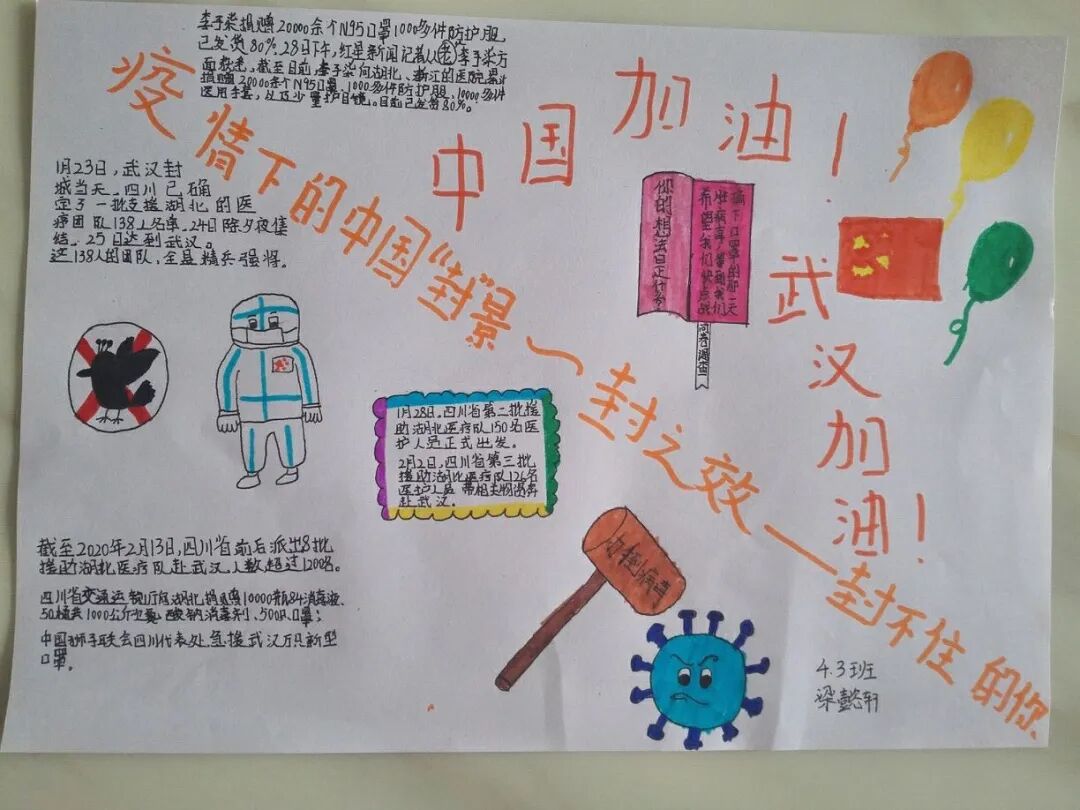 李子柒捐赠20000余个N95口罩1000多件防护服
已发货80%.28日下午,红星新闻记者从李子柒方
面获悉,截至目前,李子柒向湖北、浙江的医院累计
捐赠20000余个N95口罩,1000多件防护服,10000多件
医用手套,以及少量护目镜。目前已发货80%。
中国加油!
疫情下的中国“封”景一封之效一封不住的你
1月23日,武汉封
城当天,四川已确
定了一批支援湖北的医
疗团队138人名单,24日除夕夜集
结,25日达到武汉。
这138人的团队,全是精兵强将。
你的想法是什么
摘下口罩的那一天
希望我们
问卷调查
武汉加油!
1月28日,四川省第二批援
助湖北医疗队150名医
护人员正式出发。
2月2日,四川省第三批
援助湖北医疗队126名
医护人员 带相关物资奔
赴武汉。
力挫病毒
截至2020年2月13日,四川省前后派出8批
援助湖北医疗队赴武汉,人数超过1200名。
四川省交通运输厅向湖北捐赠10000瓶84消毒液,
50桶共1000公斤 酸钠消毒剂,500只口罩;
中国狮子联会四川代表处急援武汉万只新型
口罩。
4.3班
梁懿轩